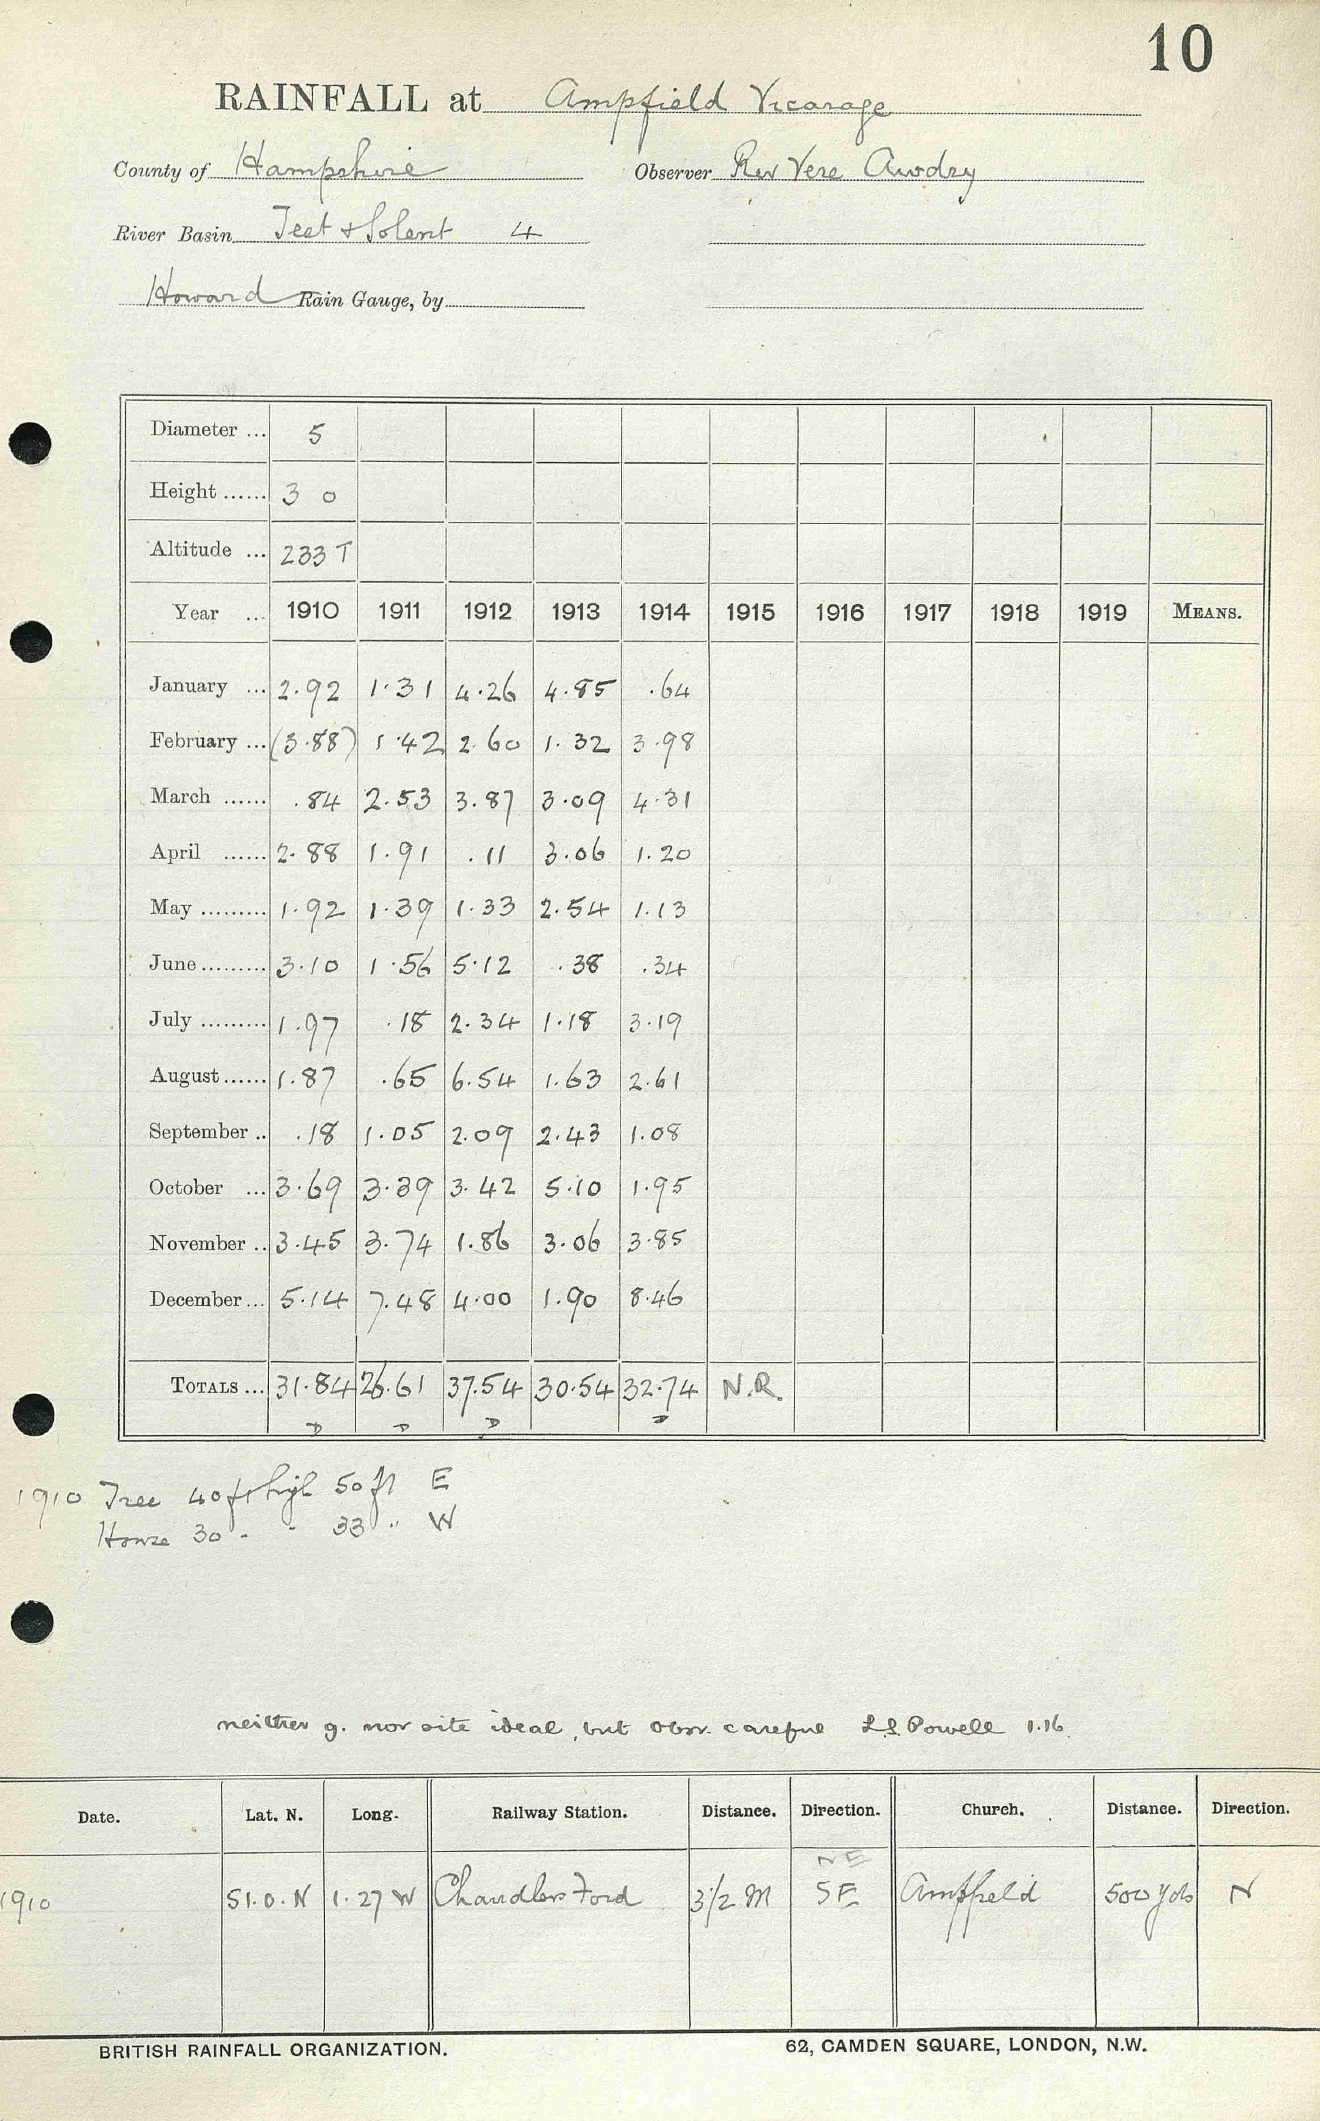 10
RAINFALL at Ampfield Vicarage
County of Hampshire Observer Rev Vere Awdry
River Basin Test & Solent 4
Howard Rain Gauge, by
Diameter ... 5
Height ...... 3 0
Altitude ... 233 T
Year ... 1910 1911 1912 1913 1914 1915 1916 1917 1918 1919 MEANS.
January ... 2.92 1.31 4.26 4.85 .64
February ... (3.88) 1.42 2.60 1.32 3.98
March ...... .84 2.53 3.87 3.09 4.31
April ...... 2.88 1.91 .11 3.06 1.20
May ......... 1.92 1.39 1.33 2.54 1.13
June ......... 3.10 1.56 5.12 .38 .34
July ......... 1.97 .18 2.34 1.18 3.19
August ...... 1.87 .65 6.54 1.63 2.61
September .. .18 1.05 2.09 2.43 1.08
October ... 3.69 3.39 3.42 5.10 1.95
November .. 3.45 3.74 1.86 3.06 3.85
December ... 5.14 7.48 4.00 1.90 8.46
TOTALS ... 31.84 26.61 37.54 30.54 32.74 N.R.
D D D D
1910 Tree 40 ft high 50 ft E
House 30 " " 33 " W
neither g. nor site ideal, but obsr. careful L.S. Powell 1.16
Date. Lat. N. Long. Railway Station. Distance. Direction. Church. Distance. Direction.
NE
1910 51.0.N 1.27 W Chandlers Ford 3 1/2 M SE Ampfield 500 yds N
BRITISH RAINFALL ORGANIZATION. 62, CAMDEN SQUARE, LONDON, N.W.